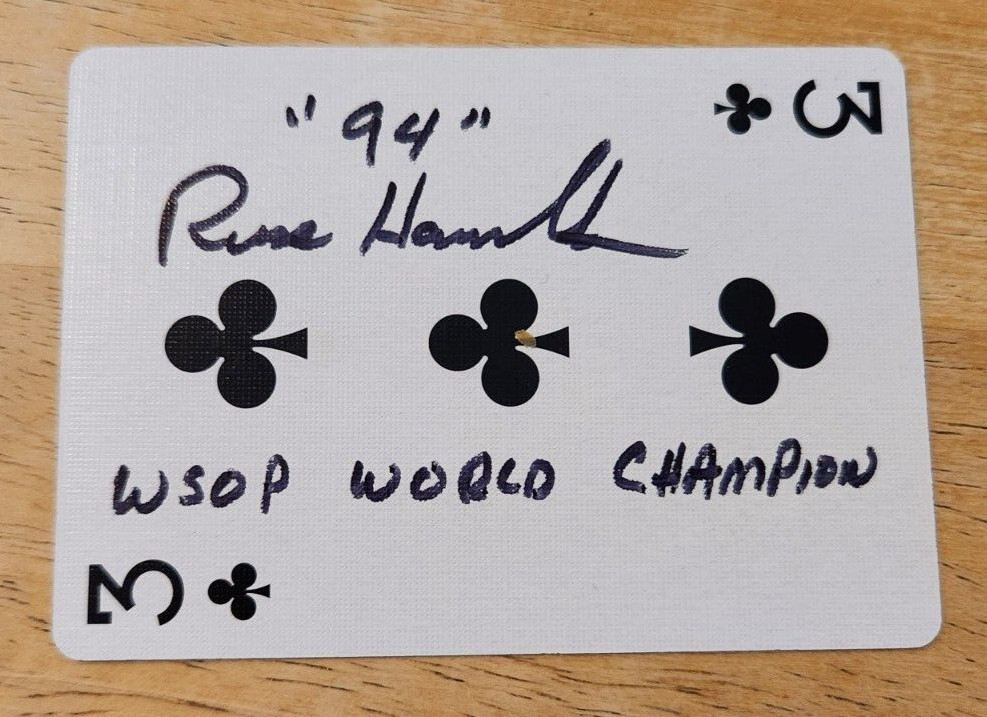 "94" 3
Russ Hamilton
WSOP WORLD CHAMPION
3